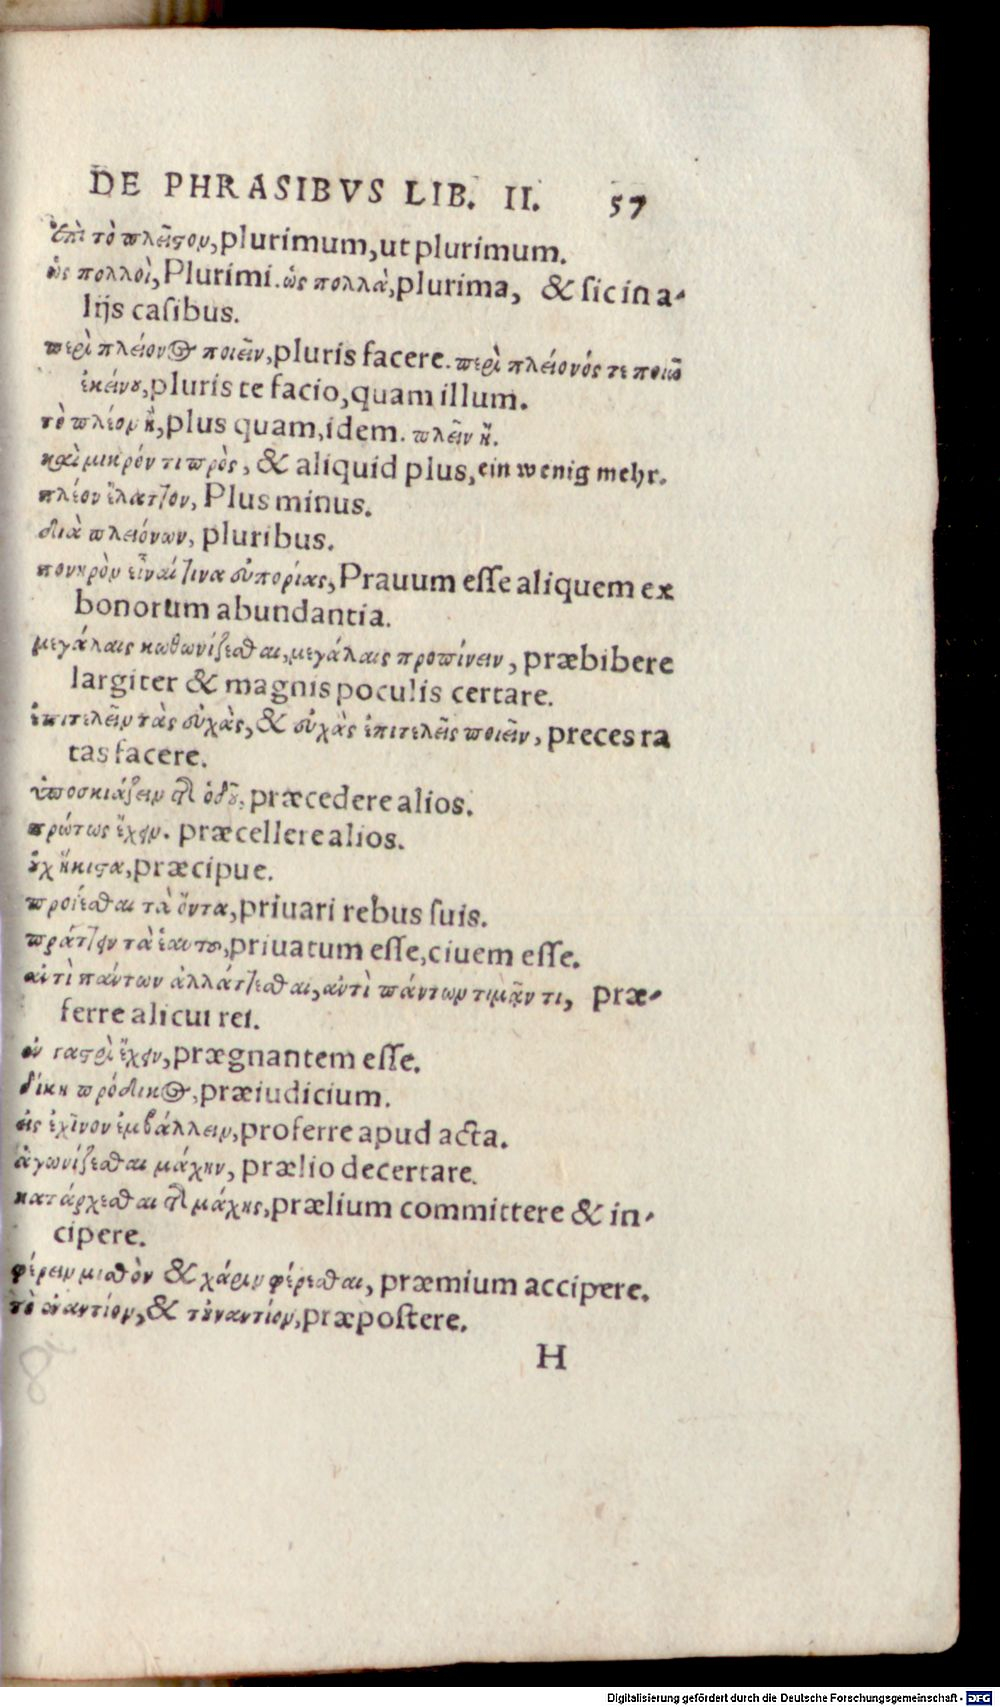 DE PHRASIBVS LIB. II. 57
ἐπὶ τὸ πλεῖϛον, plurimum, ut plurimum.
ὡς πολλοὶ, Plurimi. ὡς πολλὰ, plurima, & ſic in a-
lijs caſibus.
περὶ πλείονος ποιεῖν, pluris facere. περὶ πλείονός τε ποιῶ
ἐκείνου, pluris te facio, quam illum.
τὸ πλέον ἢ, plus quam, idem. πλεῖν ἢ.
καὶ μικρόν τι πρὸς, & aliquid plus, ein wenig mehr.
πλέον ἔλαττον, Plus minus.
διὰ πλειόνων, pluribus.
πονηρὸν εἶναί τινα εὐπορίας, Prauum eſſe aliquem ex
bonorum abundantia.
μεγάλαις κωθωνίζεσθαι, μεγάλαις προπίνειν, præbibere
largiter & magnis poculis certare.
ἐπιτελεῖν τὰς εὐχὰς, & εὐχὰς ἐπιτελεῖς ποιεῖν, preces ra
tas facere.
ὑποσκιάζειν τῆς ὁδοῦ, præcedere alios.
πρώτως ἔχειν. præcellere alios.
οὐχ ἥκιϛα, præcipue.
προΐεσθαι τὰ ὄντα, priuari rebus ſuis.
πράττειν τὰ ἑαυτοῦ, priuatum eſſe, ciuem eſſe.
ἀντὶ πάντων ἀλλάττεσθαι, ἀντὶ πάντων τιμᾶν τι, præ-
ferre alicui rei.
ἐν γαϛρὶ ἔχειν, prægnantem eſſe.
δίκη πρόδικος, præiudicium.
εἰς ἐχῖνον ἐμβάλλειν, proferre apud acta.
ἀγωνίζεσθαι μάχην, prælio decertare.
κατάρχεσθαι τῆς μάχης, prælium committere & in-
cipere.
φέρειν μισθὸν & χάριν φέρεσθαι, præmium accipere.
τὸ ἐναντίον, & τοὐναντίον, præpoſtere.
H
Digitalisierung gefördert durch die Deutsche Forschungsgemeinschaft - DFG